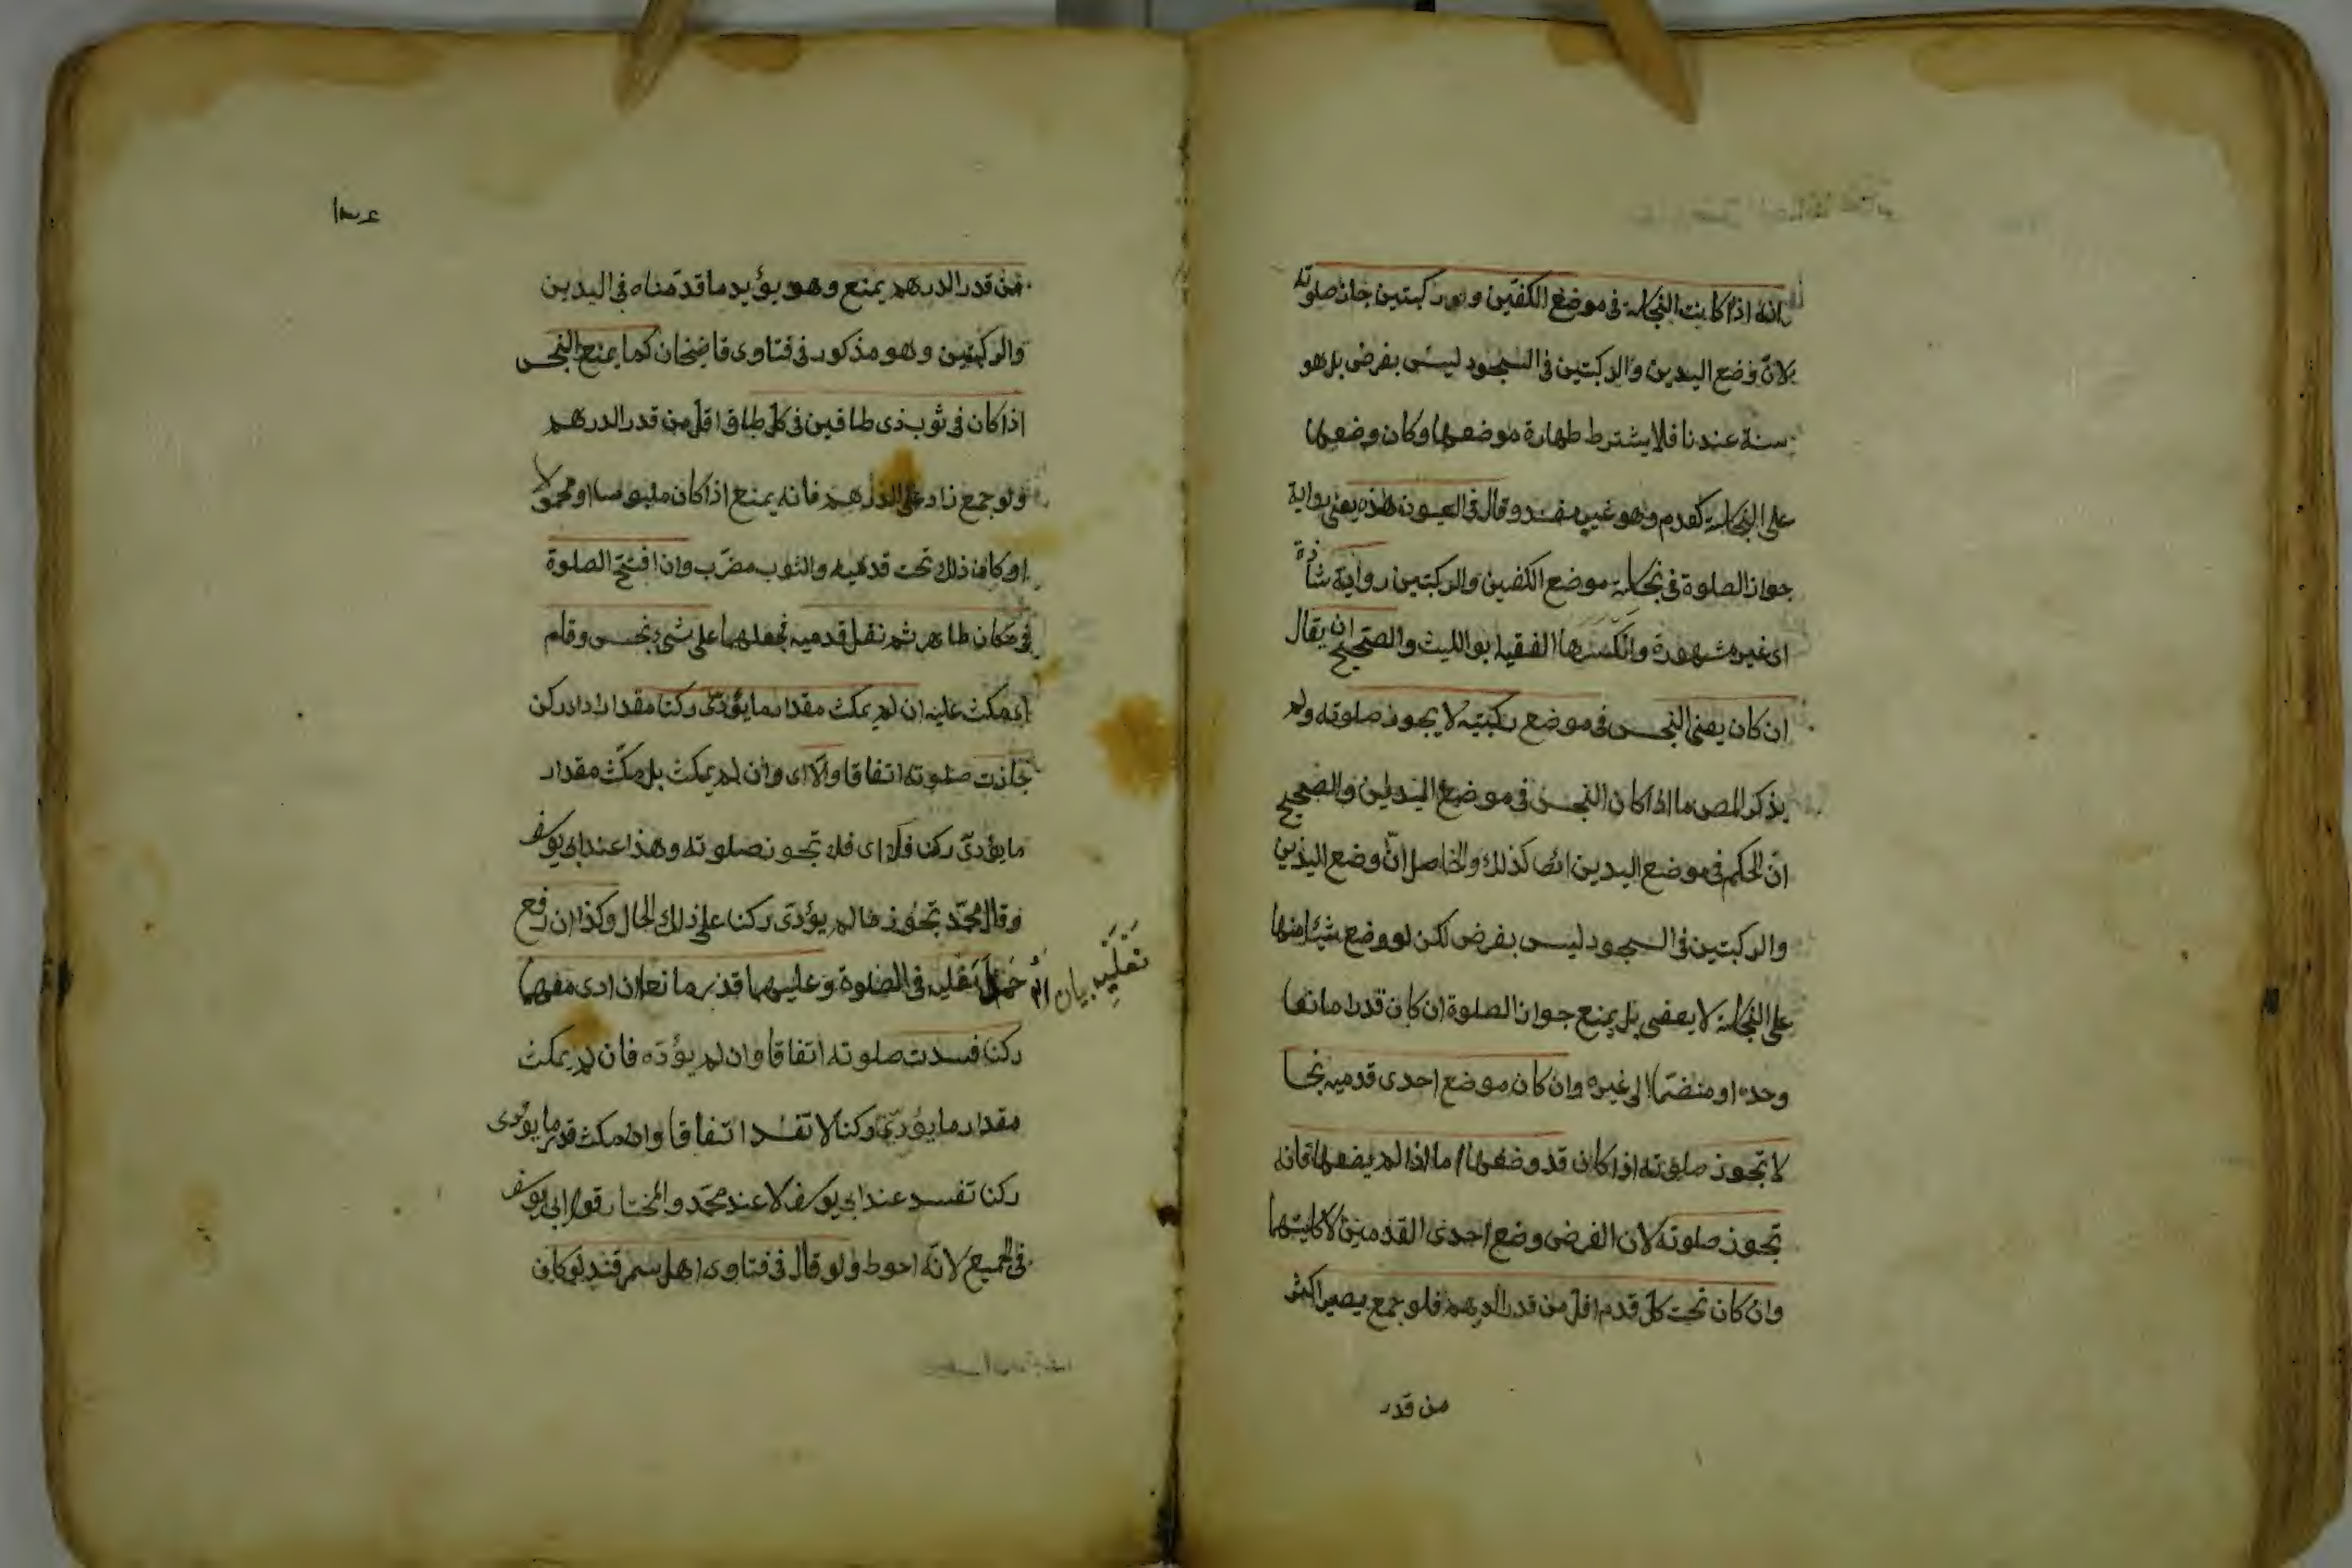 انه اذا كانت النجاسة فى موضع الكفين و الركبتين جاز صلوته
لانّ وضع اليدين والركبتين فى السجود ليس بفرض بل هو
سنة عندنا فلا يشترط طهارة موضعهما وكان وضعهما
على النجاسة كعدم وهو غير مفسد وقال فى العيون هذه يعنى رواية
جواز الصلوة فى نجاسة موضع الكفين والركبتين رواية شاذة
اى غير مشهورة وانكرها الفقيه ابو الليث والصحيح ان يقال
ان كان يعنى النجس فى موضع ركبتيه لا يجوز صلوته ولم
يذكر المص ما اذا كان النجس فى موضع اليدين والصحيح
انّ الحكم فى موضع اليدين ايضا كذلك والحاصل انّ وضع اليدين
والركبتين فى السجود ليس بفرض لكن لو وضع شيئا منها
على النجاسة لا يعفى بل يمنع جواز الصلوة ان كان قدرا مانعا
وحده او منضمّا الى غيره وان كان موضع احدى قدميه نجسا
لا تجوز صلوته اذا كان قد وضعها اما اذا لم يضعها فانه
تجوز صلوته لان الفرض وضع احدى القدمين لا كليتهما
وان كان تحت كل قدم اقل من قدر الدرهم فلو جمع يصير اكثر
من قدر
من قدر الدرهم يمنع وهو يؤيد ما قدّمناه فى اليدين
والركبتين وهو مذكور فى فتاوى قاضيخان كما يمنع النجس
اذا كان فى ثوب ذى طاقين فى كل طاق اقل من قدر الدرهم
ولو جمع زاد على الدرهم فانه يمنع اذا كان ملبوسا او محمولا
او كان ذلك تحت قدميه والثوب مضرّب وان افتتح الصلوة
فى مكان طاهر ثم نقل قدميه فجعلهما على شىء نجس وقام
اى مكث عليه ان لم يمكث مقدار ما يؤدّى ركنا مقدار اداء ركن
جازت صلوته اتفاقا والّا اى وان لم يمكث بل مكث مقدار
ما يؤدّى ركنا فلا اى فلا تجوز صلوته وهذا عند ابى يوسف
وقال محمّد تجوز ما لم يؤدّى ركنا على ذلك الحال وكذا ان رفع
نعليه بيان
نعليه فى الصلوة وعليهما قذر مانع ان ادى معهما
ركنا فسدت صلوته اتفاقا وان لم يؤدّه فان لم يمكث
مقدار ما يؤدّى ركنا لا تفسد اتفاقا وان مكث قدر ما يؤدى
ركنا تفسد عند ابى يوسف لا عند محمّد والمختار قول ابى يوسف
فى الجميع لانّه احوط ولو قال فى فتاوى اهل سمرقند لو كان